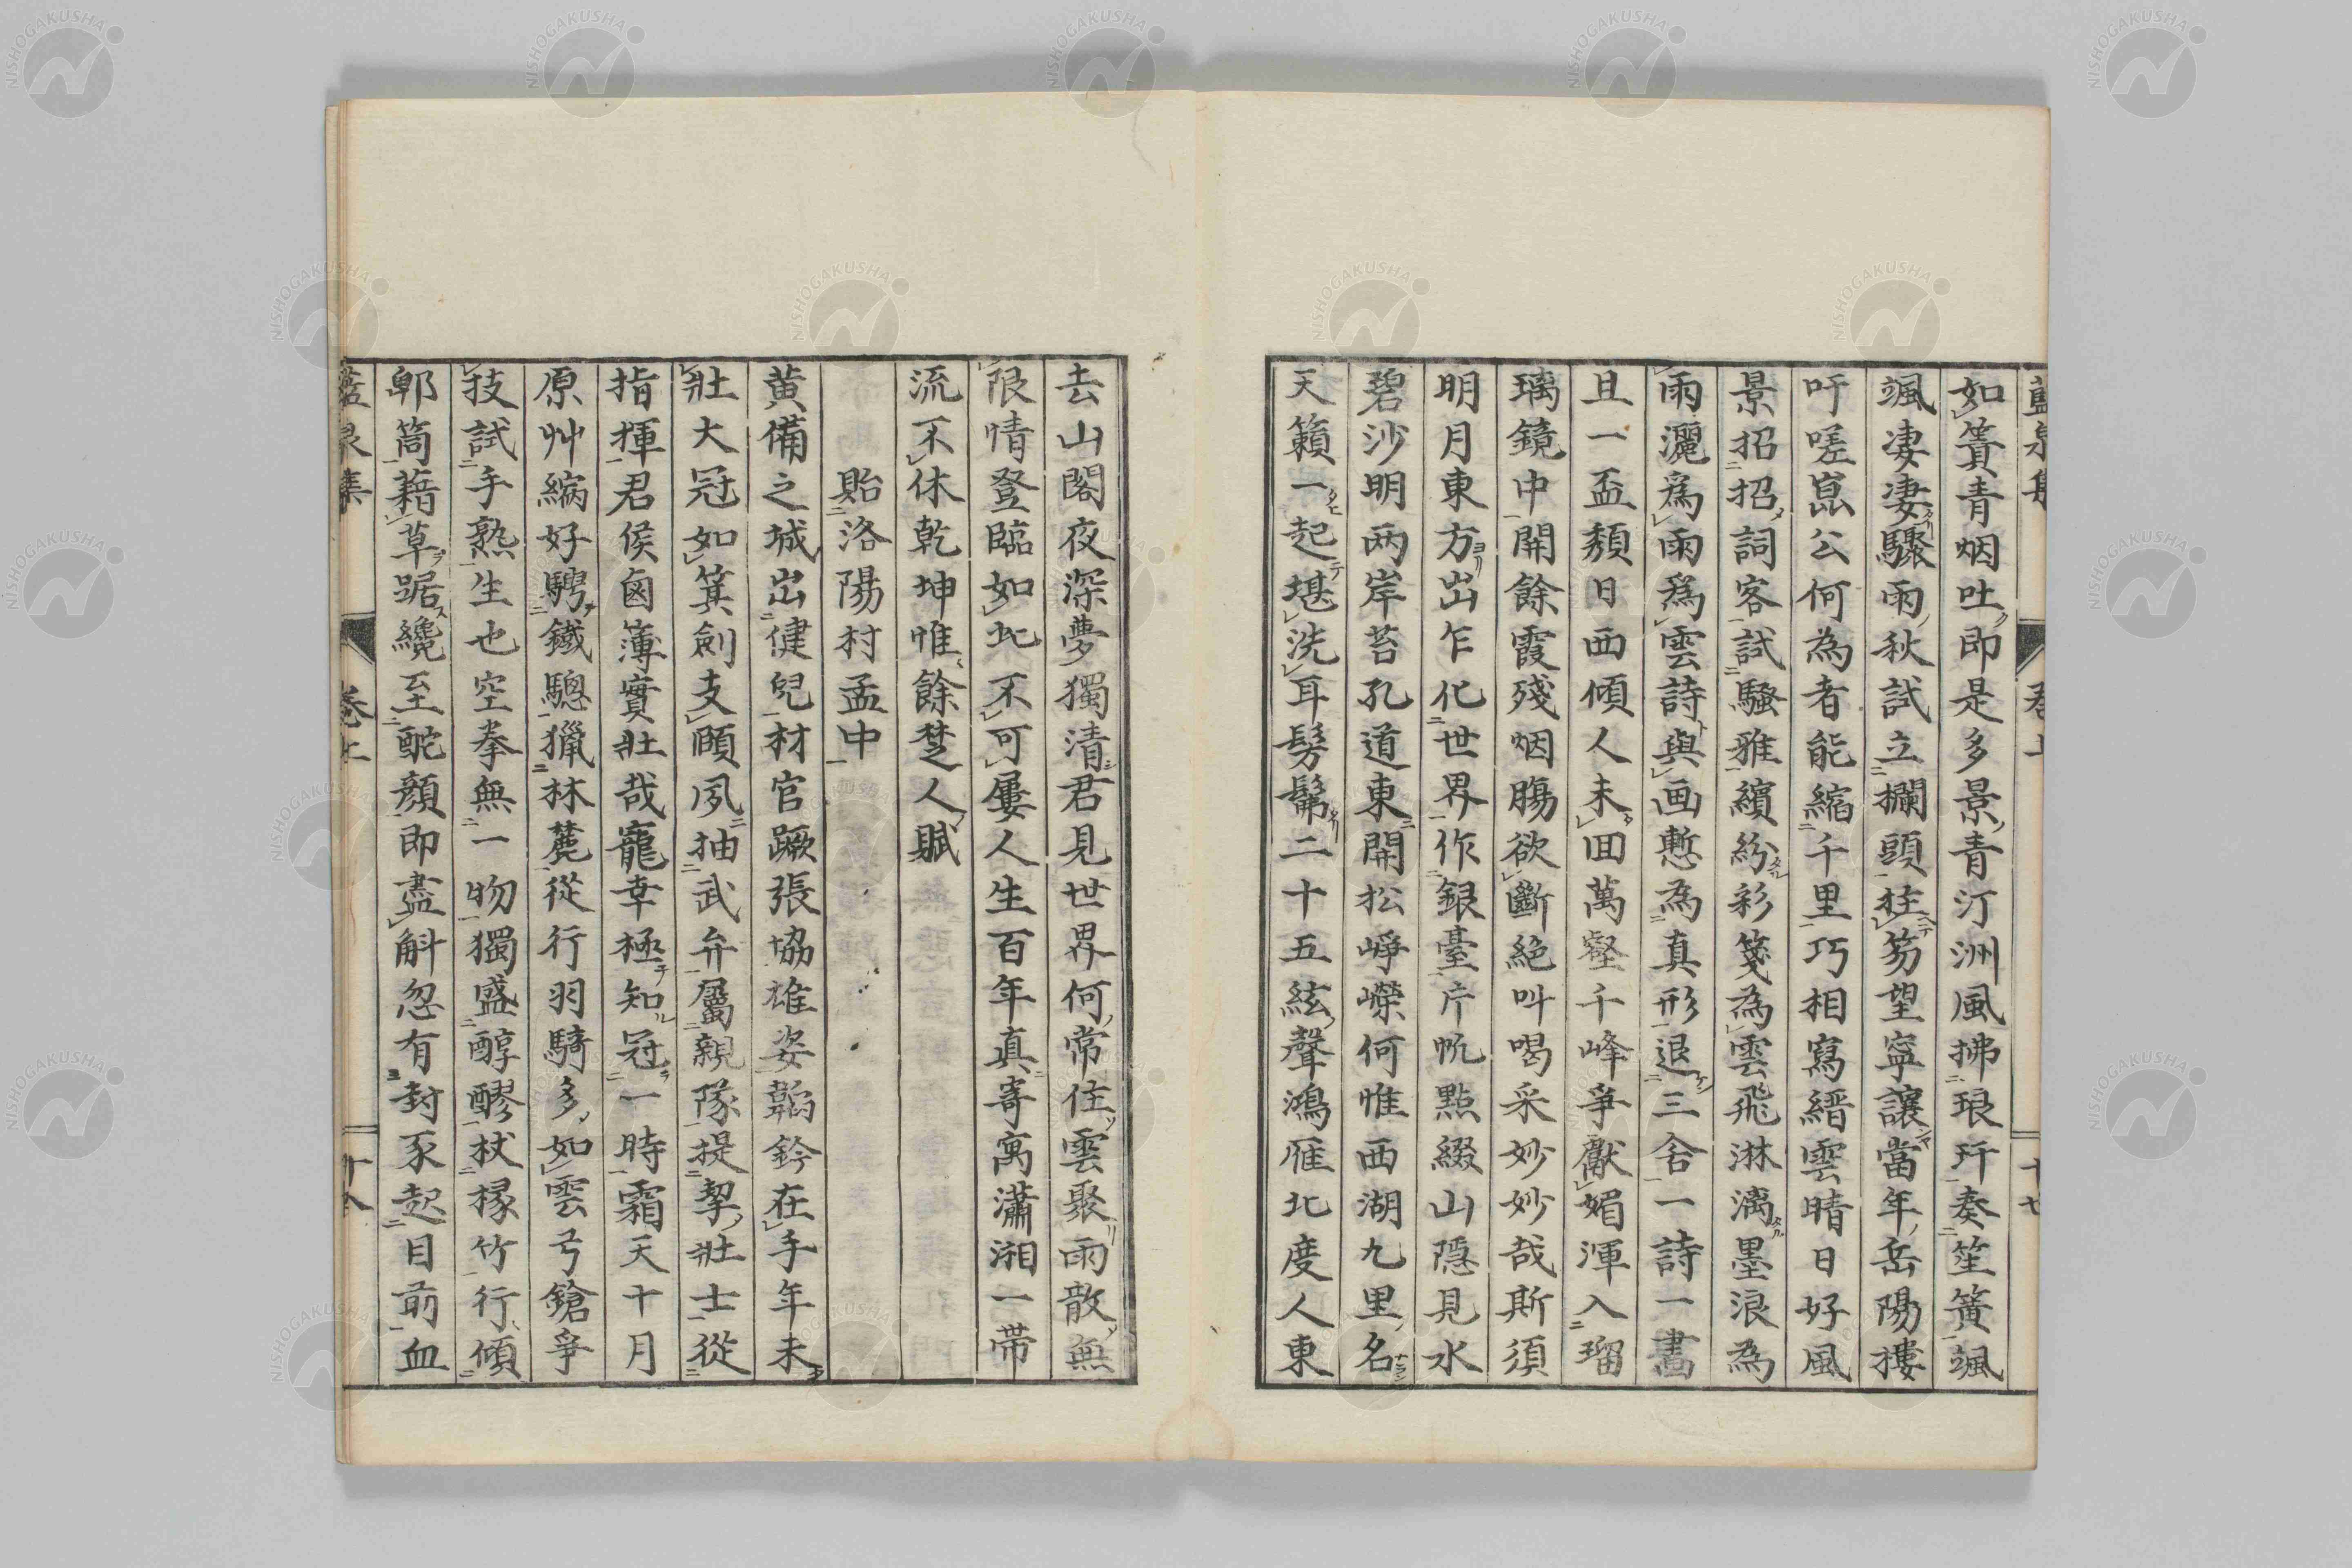 藍泉集 卷上 十七
如簀青烟吐即是多景青汀洲風拂琅玕奏笙簧颯
颯凄凄驟雨秋試立欄頭拄笏望寧讓當年岳陽摟
吁嗟崑公何為者能縮千里巧相寫縉雲晴日好風
景招招詞客試騷雅繽紛彩箋為雲飛淋漓墨浪為
雨灑爲雨爲雲詩與画慙為真形退三舍一詩一畵
且一盃頹日西傾人未回萬壑千峰爭獻媚渾入瑠
璃鏡中開餘霞殘烟腸欲斷絶叫喝采妙妙哉斯須
明月東方出乍化世界作銀臺片帆點綴山隠見水
碧沙明两岸苔孔道東開松崢嶸何惟西湖九里名
天籟一起堪洗耳髣髴二十五絃聲鴻雁北度人東
去山閣夜深夢獨清君見世界何常住雲聚雨散無
限情登臨如此不可屢人生百年真寄寓瀟湘一帯
流不休乾坤惟餘楚人賦
貽洛陽村孟中
黄備之城出健兒材官蹶張協雄姿韜鈐在手年未
壯大冠如箕劍支頤夙抽武弁屬親隊提挈壯士從
指揮君侯鹵簿實壯哉寵幸極知冠一時霜天十月
原艸縞好騁鐵驄獵林麓從行羽騎多如雲弓鎗爭
技試手熟生也空拳無一物獨盛醇醪杖椽竹行傾
郫筒藉草踞纔至酡顔即盡斛忽有封豕起目前血
藍泉集 卷上 十八